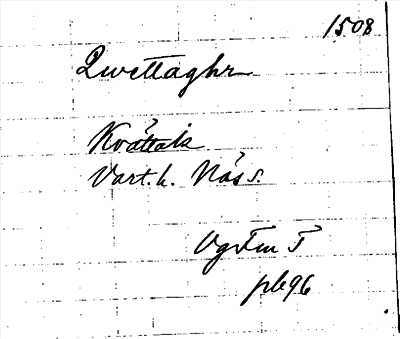 1508
Qwettaghr
Kvättak
Vart. h. Näs s.
Vg Fm I
pb 96